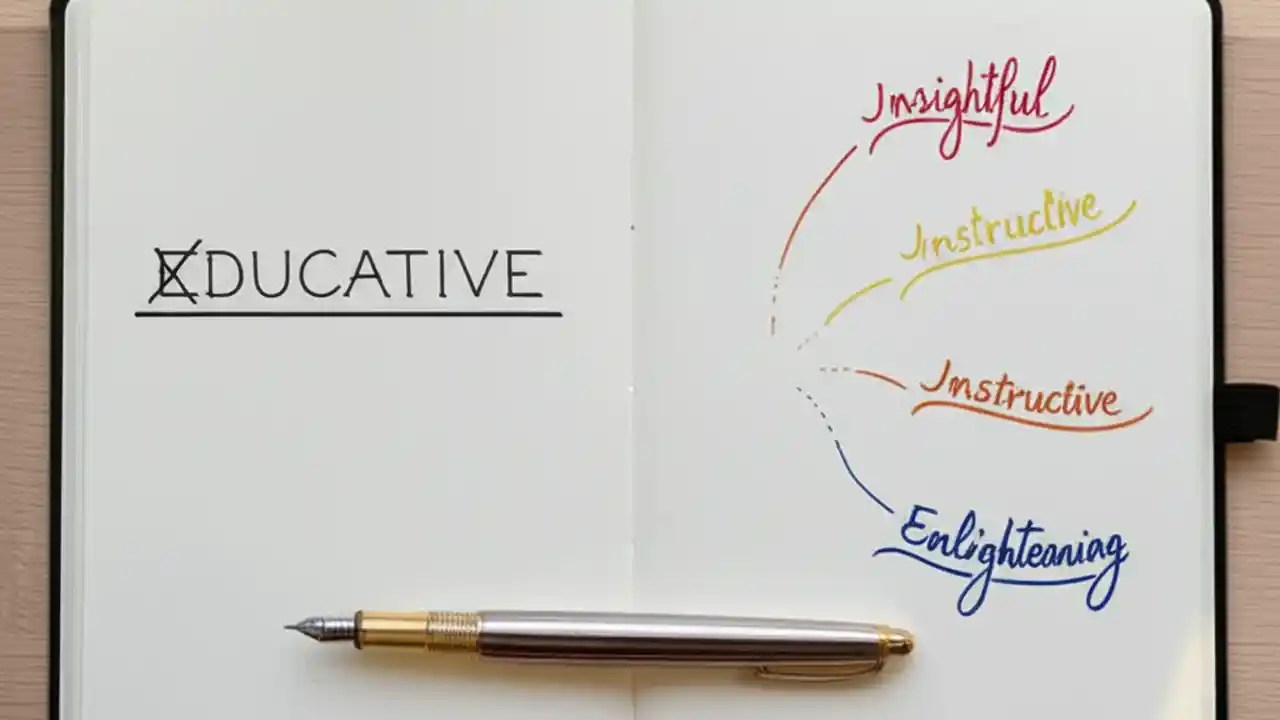 EDUCATIVE
Insightful
Instructive
Instructive
Enlighteaning